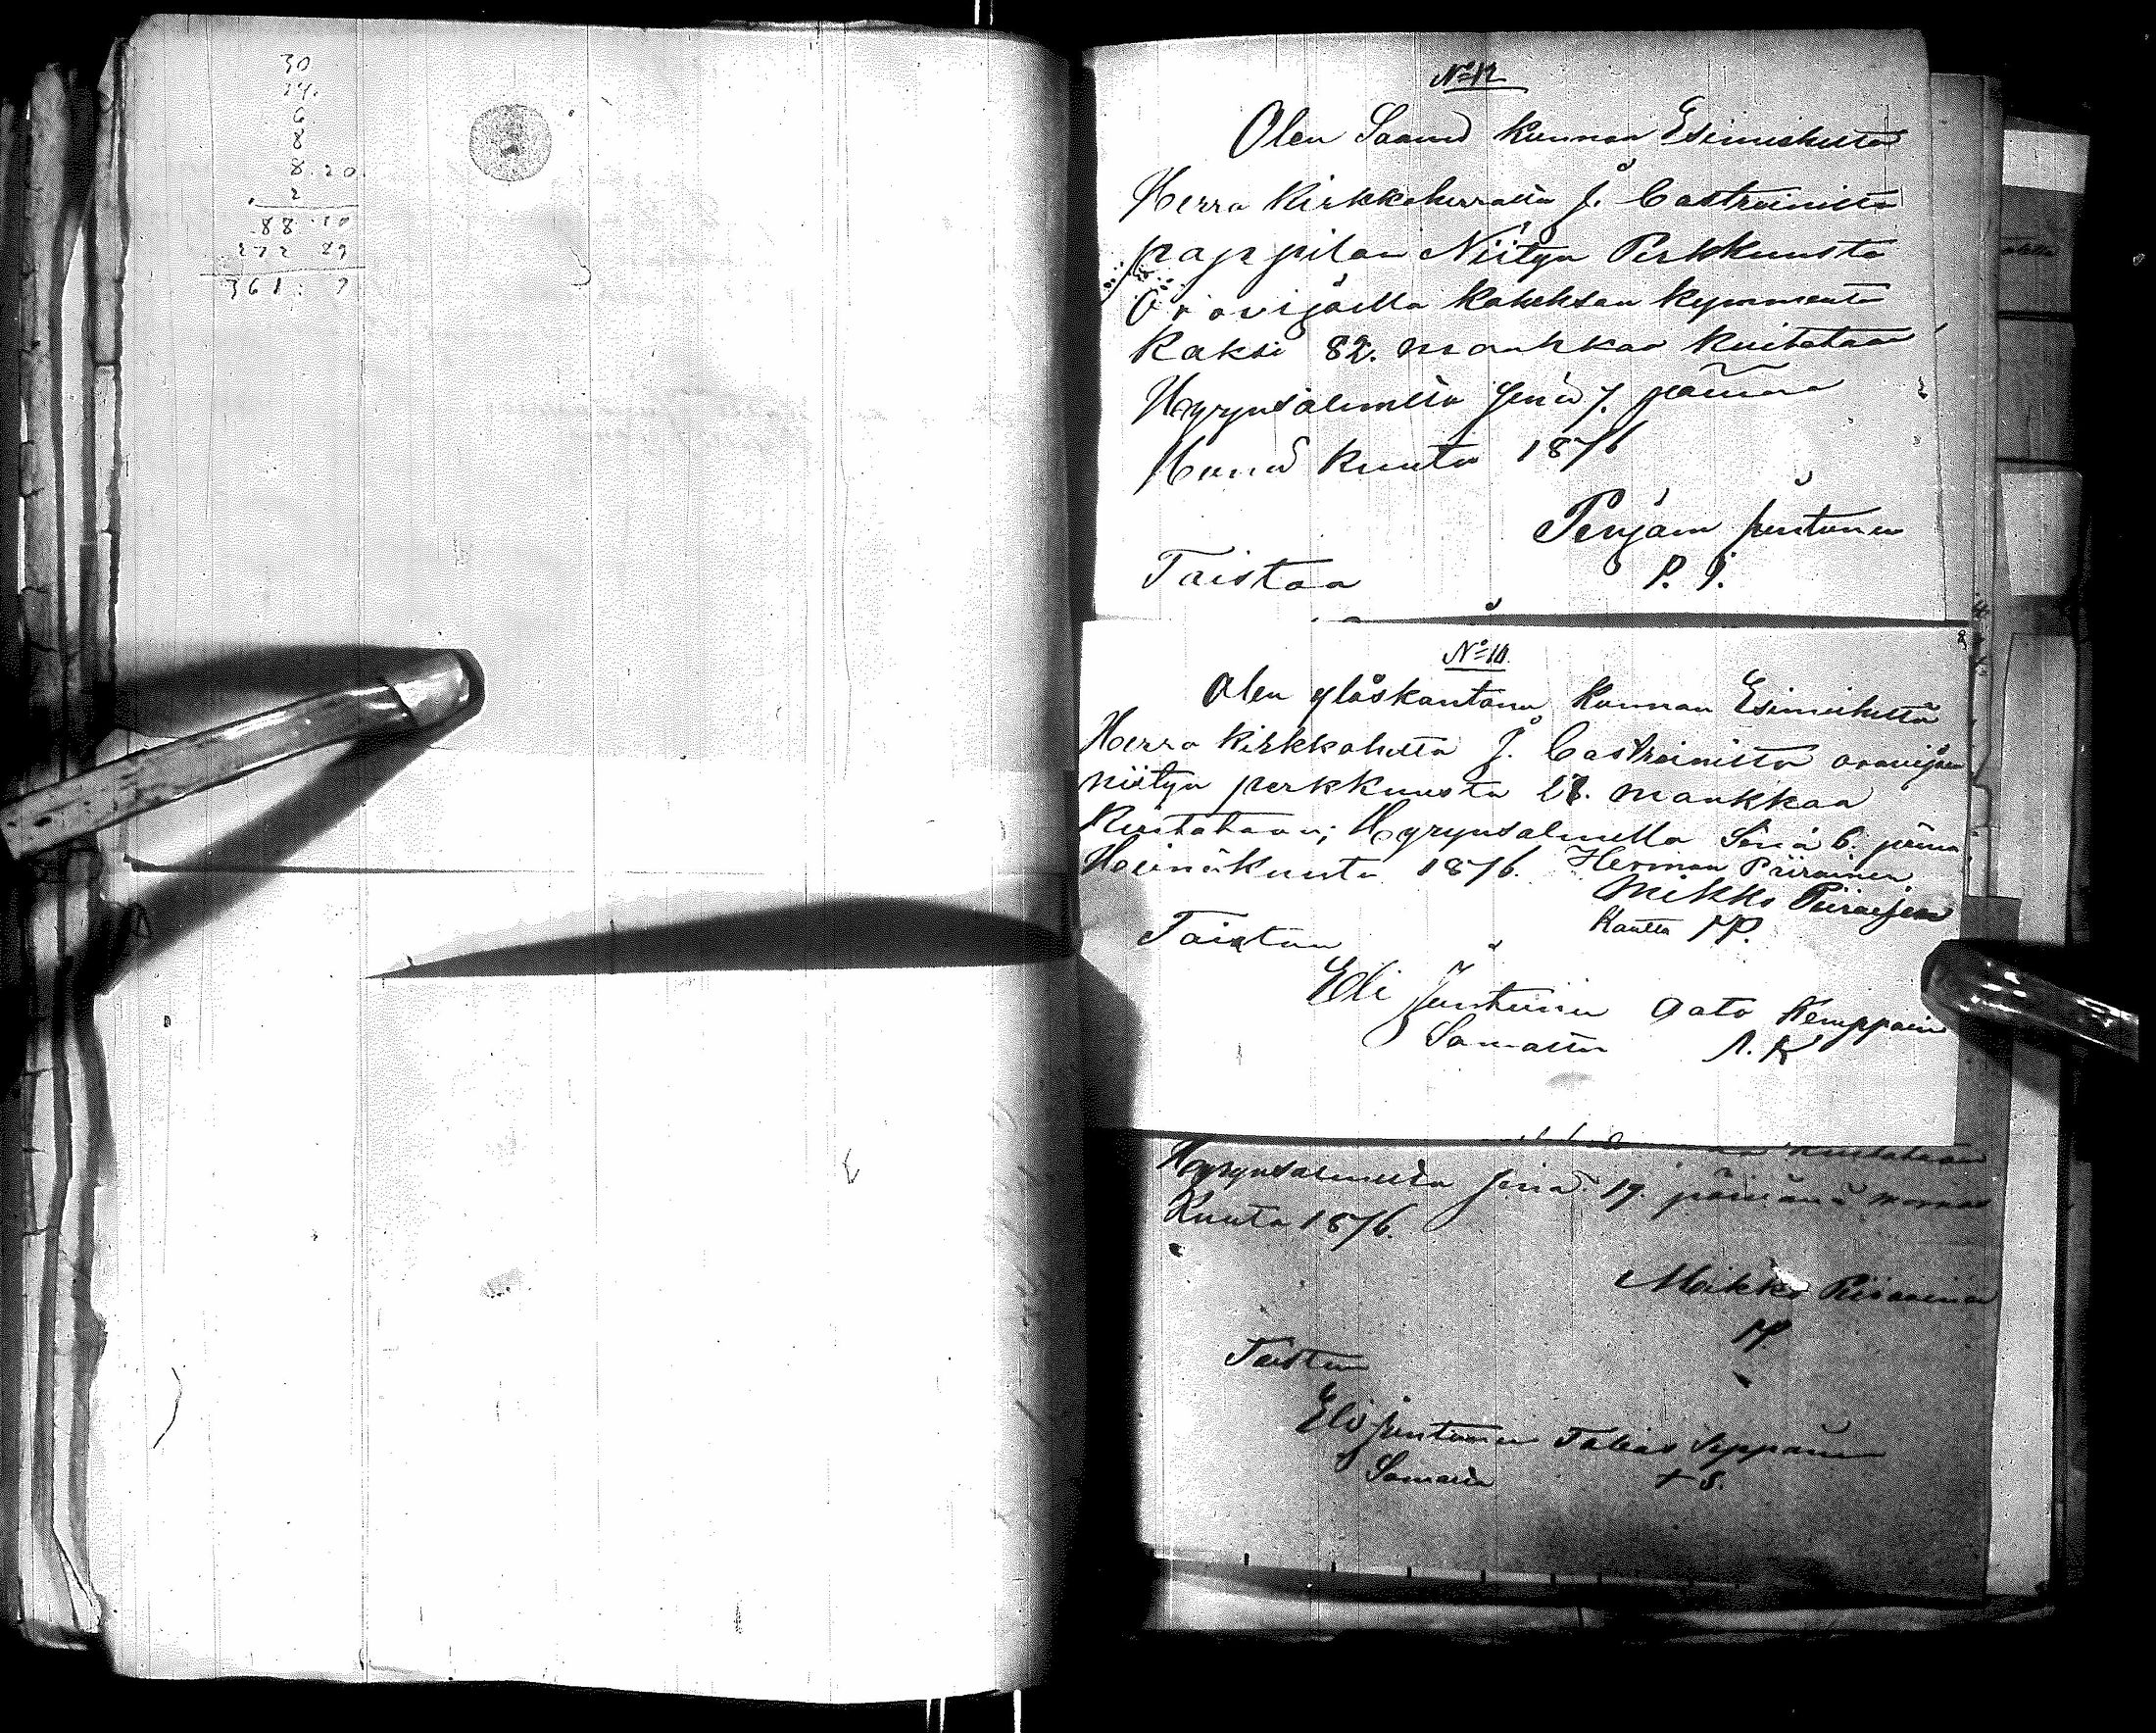 30
24.
6
8
8.20
2
88.10
272 89
361:9
No 12
Olen Saanu Kunnan Esimieheltä
Herra Kirkkoherralta J. Castreinilta
pappilan Niityn Perkkuusta
Oravijoella Kaheksan kymmentä
Kaksi 82. markkaa Kuitataan
Hyrynsalmella Senä 7. päivänä
Heinä kuuta 1876
Penjam Juntunen
Toistaa P. J.
No 10.
Olen ylöskantanu Kunnan Esimieheltä
Herra Kirkkoherralta J. Castreinilta oravijoen
niityn perkkuusta markkaa
Kuitataan; Hyrynsalmella Senä 6. päivä
Heinäkuuta 1876. Herman Piirainen
Mikko Piiraisen
Kautta MP.
Toistaa
Eli Juntunen Aato Kemppainen
Samalta A. K
Kuitataan
Hyrynsalmella Senä 19. päivänä marras
Kuuta 1876.
Mikko Piirainen
MP.
Toistaa
Eli Juntunen Tobias Seppänen
Samalta T S.